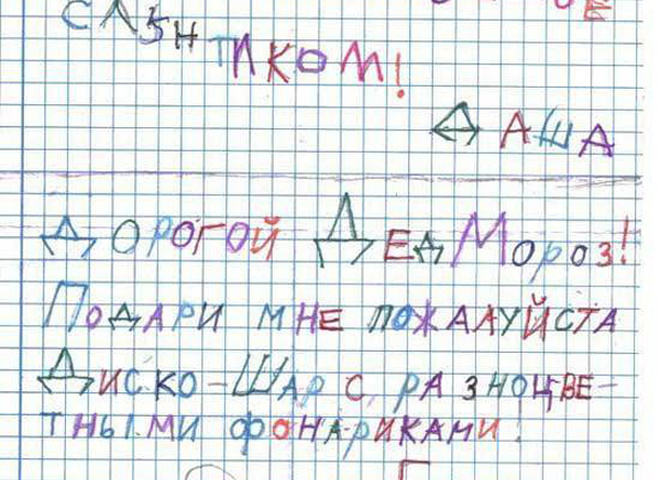 ТИКОМ!
ДАША
ДОРОГОЙ ДЕД МОРОЗ!
ПОДАРИ МНЕ ПОЖАЛУЙСТА
ДИСКО-ШАР С РАЗНОЦВЕ-
ТНЫМИ ФОНАРИКАМИ!